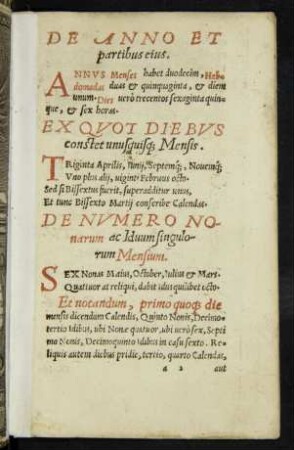 DE ANNO ET
partibus eius.
ANNVS Menses habet duodecim, Heb-
domadas duas & quinquaginta, & diem
unum. Dies uerò trecentos sexaginta quin-
que, & sex horas.
EX QVOT DIEBVS
constet unusquisq; Mensis.
TRiginta Aprilis, Iunij, Septemq;, Nouemq;
Vno plus alij, uiginti Februus octo
Sed si Bissextus fuerit, superadditur unus,
Et tunc Bissexto Martij conscribe Calendas.
DE NVMERO NO-
narum ac Iduum singulo-
rum Mensium.
SEX Nonas Maius, October, Iulius & Mars.
Quatuor at reliqui, dabit idus quilibet octo.
Et notandum, primo quoq; die
mensis dicendum Calendis, Quinto Nonis, Decimo-
tertio Idibus, ubi Nonæ quatuor, ubi uerò sex, Septi
mo Nonis, Decimoquinto Idibus in casu sexto. Re-
liquis autem diebus pridie, tertio, quarto Calendas,
a 2 aut